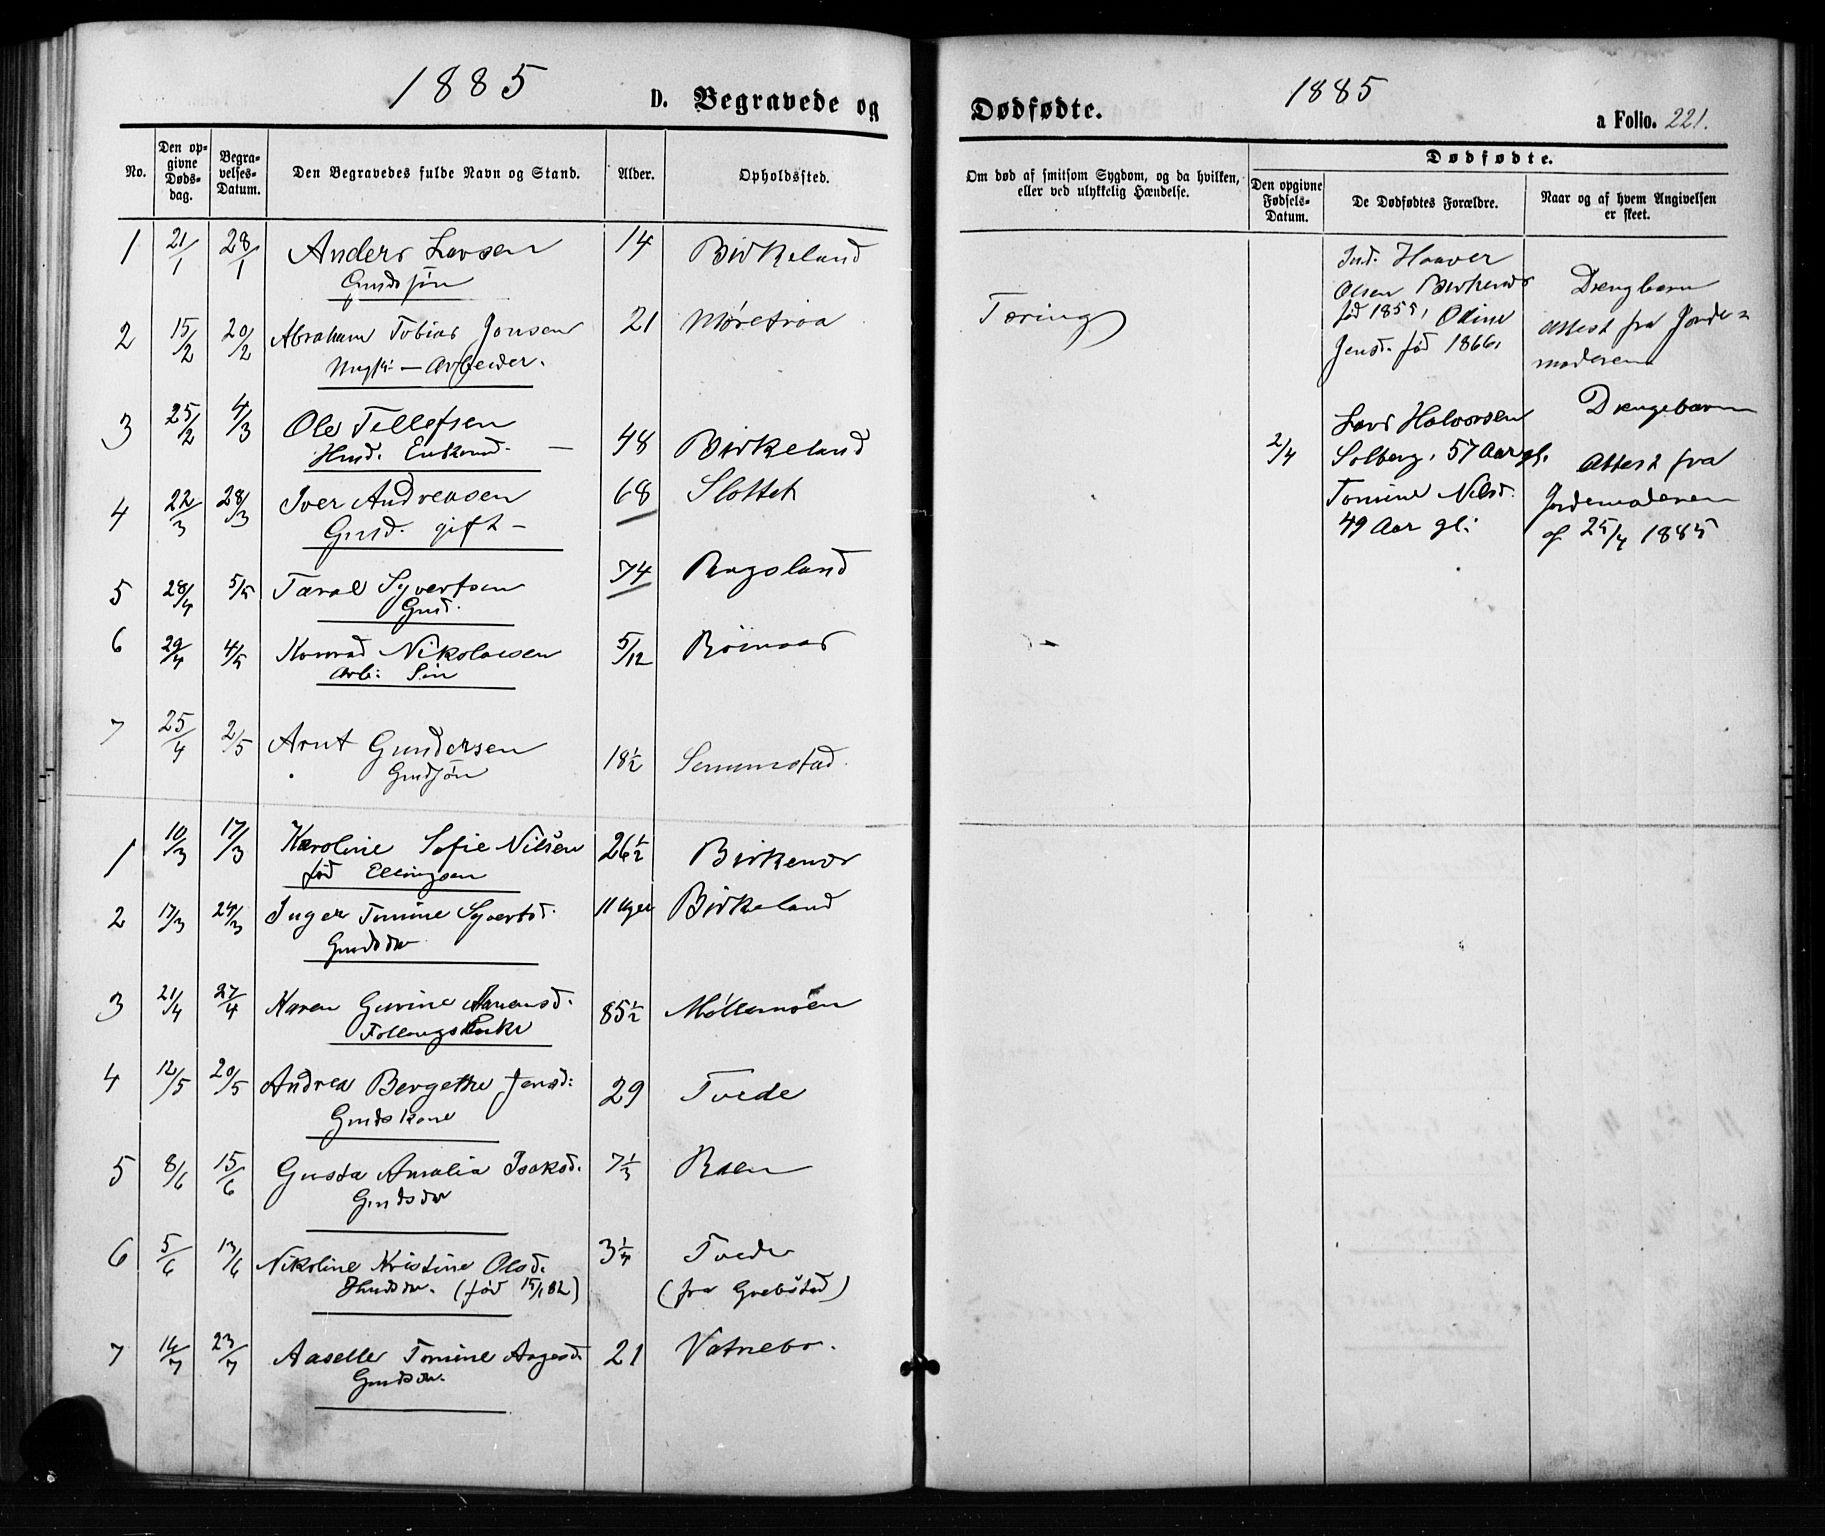 1885
D. Begravede og
No.
Den op-
givne
Døds-
dag.
Begra-
velses-
Datum.
Den Begravedes fulde Navn og Stand.
Alder.
Opholdssted.
1 21/1 28/1 Anders Larsen 14 Birkeland
Gmdssøn
2 15/2 20/2 Abraham Tobias Jonsen 21 Møretraa
Ungk: – Arbeider.
3 25/2 4/3 Ole Tellefsen 48 Birkeland
Hmd. Enkemd. –
4 22/3 28/3 Iver Andreasen 68 Slottet
Gmd. gift –
5 28/4 5/5 Taral Syvertsen 74 Rugsland
Gmd.
6 29/4 4/5 Konrad Nikolaisen 5/12
Arb: Søn
7 25/4 2/5 Arnt Gundersen 18½ Senumstad.
Gmdsøn
1 10/3 17/3 Karoline Sofie Nilsen 26½ Birkenes
fød Ellingsen
2 17/3 24/3 Inger Tomine Syvertsd. 11 Uger Birkeland
Gmdsdtr
3 21/4 27/4 Karen Gurine Aanensd. 85½ Møllemoen
Enke
4 12/5 20/5 Andrea Bergethe Jensd: 29 Tvede
Gmdskone
5 8/6 15/6 Gusta Amalia Isaksd. 7⅓ Raen
Gmdsdtr
6 5/6 13/6 Nikoline Kristine Olsd. 3¼ Tvede
Hmdsdtr. (fød 15/1 82) (fra Grebstad)
7 16/7 23/7 Aaselle Tomine Aagesd. 21 Vatnebo.
Gmdsdtr.
Dødfødte.
1885
a Folio. 221.
Om død af smitsom Sygdom, og da hvilken,
eller ved ulykkelig Hændelse.
Dødfødte.
Den opgivne
Fødsels-
Datum.
De Dødfødtes Forældre.
Naar og af hvem Angivelsen
er skeet.
Tæring
Ind. Haaver
Olsen Birkenes
fød 1855, Odine
Jensd. fød 1866.
Drengbarn
Attest fra Jorde-
moderen
2/4
Lars Halvorsen
Solberg, 57 Aar gl.
Tomine Nilsd.
49 Aar gl:
Drengebarn
Attest fra
Jordemoderen
af 25/4 1885